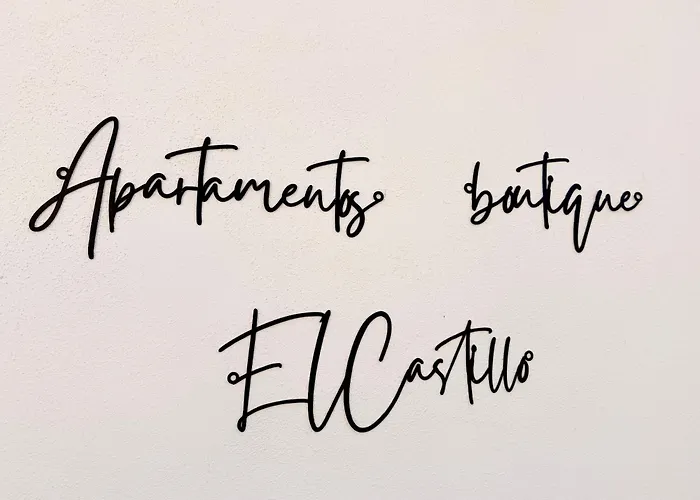 Apartamentos boutique
El Castillo